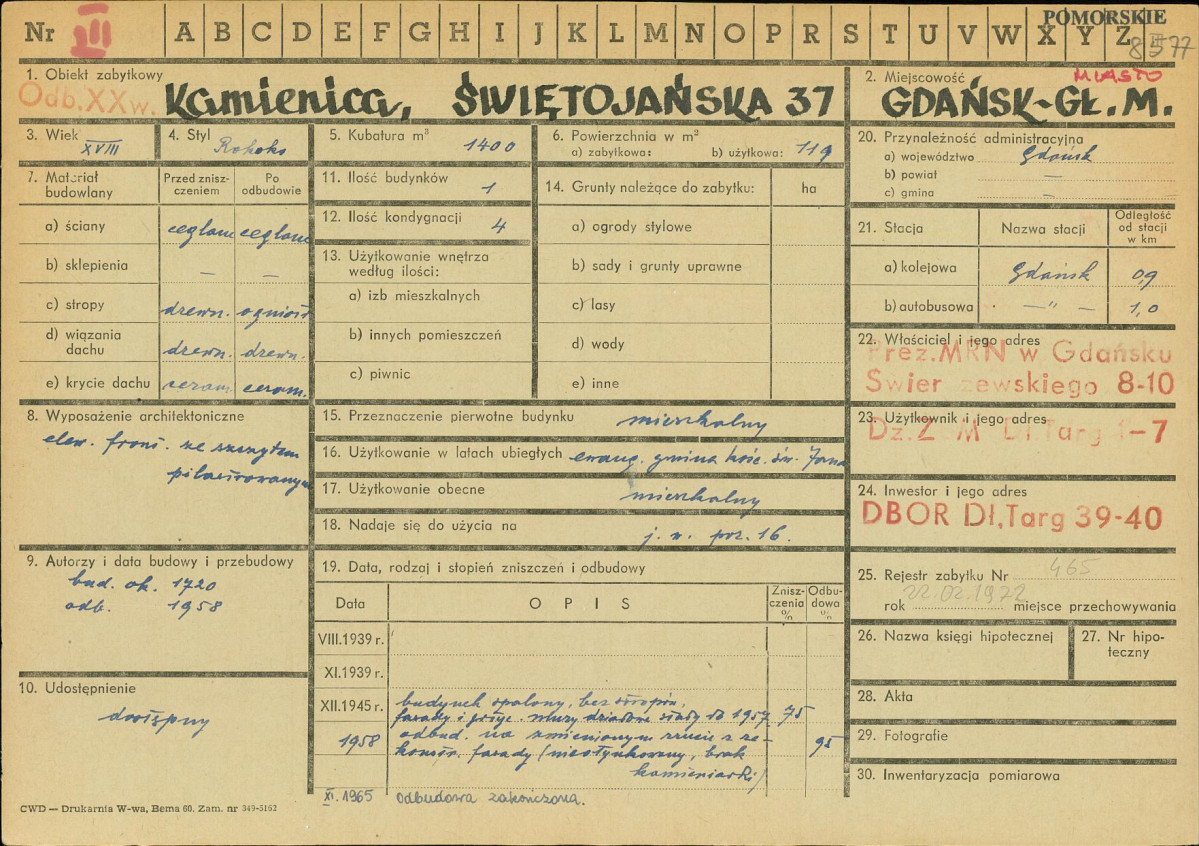 Nr III A B C D E F G H I J K L M N O P R S T U V W X Y Z
POMORSKIE
1. Obiekt zabytkowy
Odb. XX w. Kamienica, ŚWIĘTOJAŃSKA 37
2. Miejscowość MIASTO
GDAŃSK-GŁ. M.
3. Wiek XVIII
4. Styl Rokoko
5. Kubatura m³ 1400
6. Powierzchnia w m²
a) zabytkowa: b) użytkowa: 119
7. Materiał budowlany
Przed zniszczeniem
Po odbudowie
a) ściany ceglane ceglane
b) sklepienia — —
c) stropy drewn. ogniotr.
d) wiązania dachu drewn. drewn.
e) krycie dachu ceram. ceram.
8. Wyposażenie architektoniczne
elew. front. ze szczytem
pilastrowanym
9. Autorzy i data budowy i przebudowy
bud. ok. 1720
odb. 1958
10. Udostępnienie
dostępny
11. Ilość budynków 1
12. Ilość kondygnacji 4
13. Użytkowanie wnętrza
według ilości:
a) izb mieszkalnych
b) innych pomieszczeń
c) piwnic
14. Grunty należące do zabytku: ha
a) ogrody stylowe
b) sady i grunty uprawne
c) lasy
d) wody
e) inne
15. Przeznaczenie pierwotne budynku mieszkalny
16. Użytkowanie w latach ubiegłych ewang. gmina kość. św. Jana
17. Użytkowanie obecne mieszkalny
18. Nadaje się do użycia na j. w. poz. 16.
19. Data, rodzaj i stopień zniszczeń i odbudowy
Data OPIS Zniszczenia % Odbudowa %
VIII.1939 r.
XI.1939 r.
XII.1945 r. budynek spalony, bez stropów,
fasady i przyc. mury działowe stały do 1957 75
1958 odbud. na zmienionym rzucie z re-
konstr. fasady (nieotynkowany, brak 95
kamieniarki)
XI.1965 odbudowa zakończona.
20. Przynależność administracyjna
a) województwo Gdańsk
b) powiat —
c) gmina —
21. Stacja Nazwa stacji Odległość od stacji w km
a) kolejowa Gdańsk 0,9
b) autobusowa —"— 1,0
22. Właściciel i jego adres
Prez. MRN w Gdańsku
Świerczewskiego 8-10
23. Użytkownik i jego adres
Dł. Targ -7
24. Inwestor i jego adres
DBOR Dł. Targ 39-40
25. Rejestr zabytku Nr 465
rok 22.02.1972 miejsce przechowywania
26. Nazwa księgi hipotecznej
27. Nr hipoteczny
28. Akta
29. Fotografie
30. Inwentaryzacja pomiarowa
CWD — Drukarnia W-wa, Bema 60. Zam. nr 349-5162